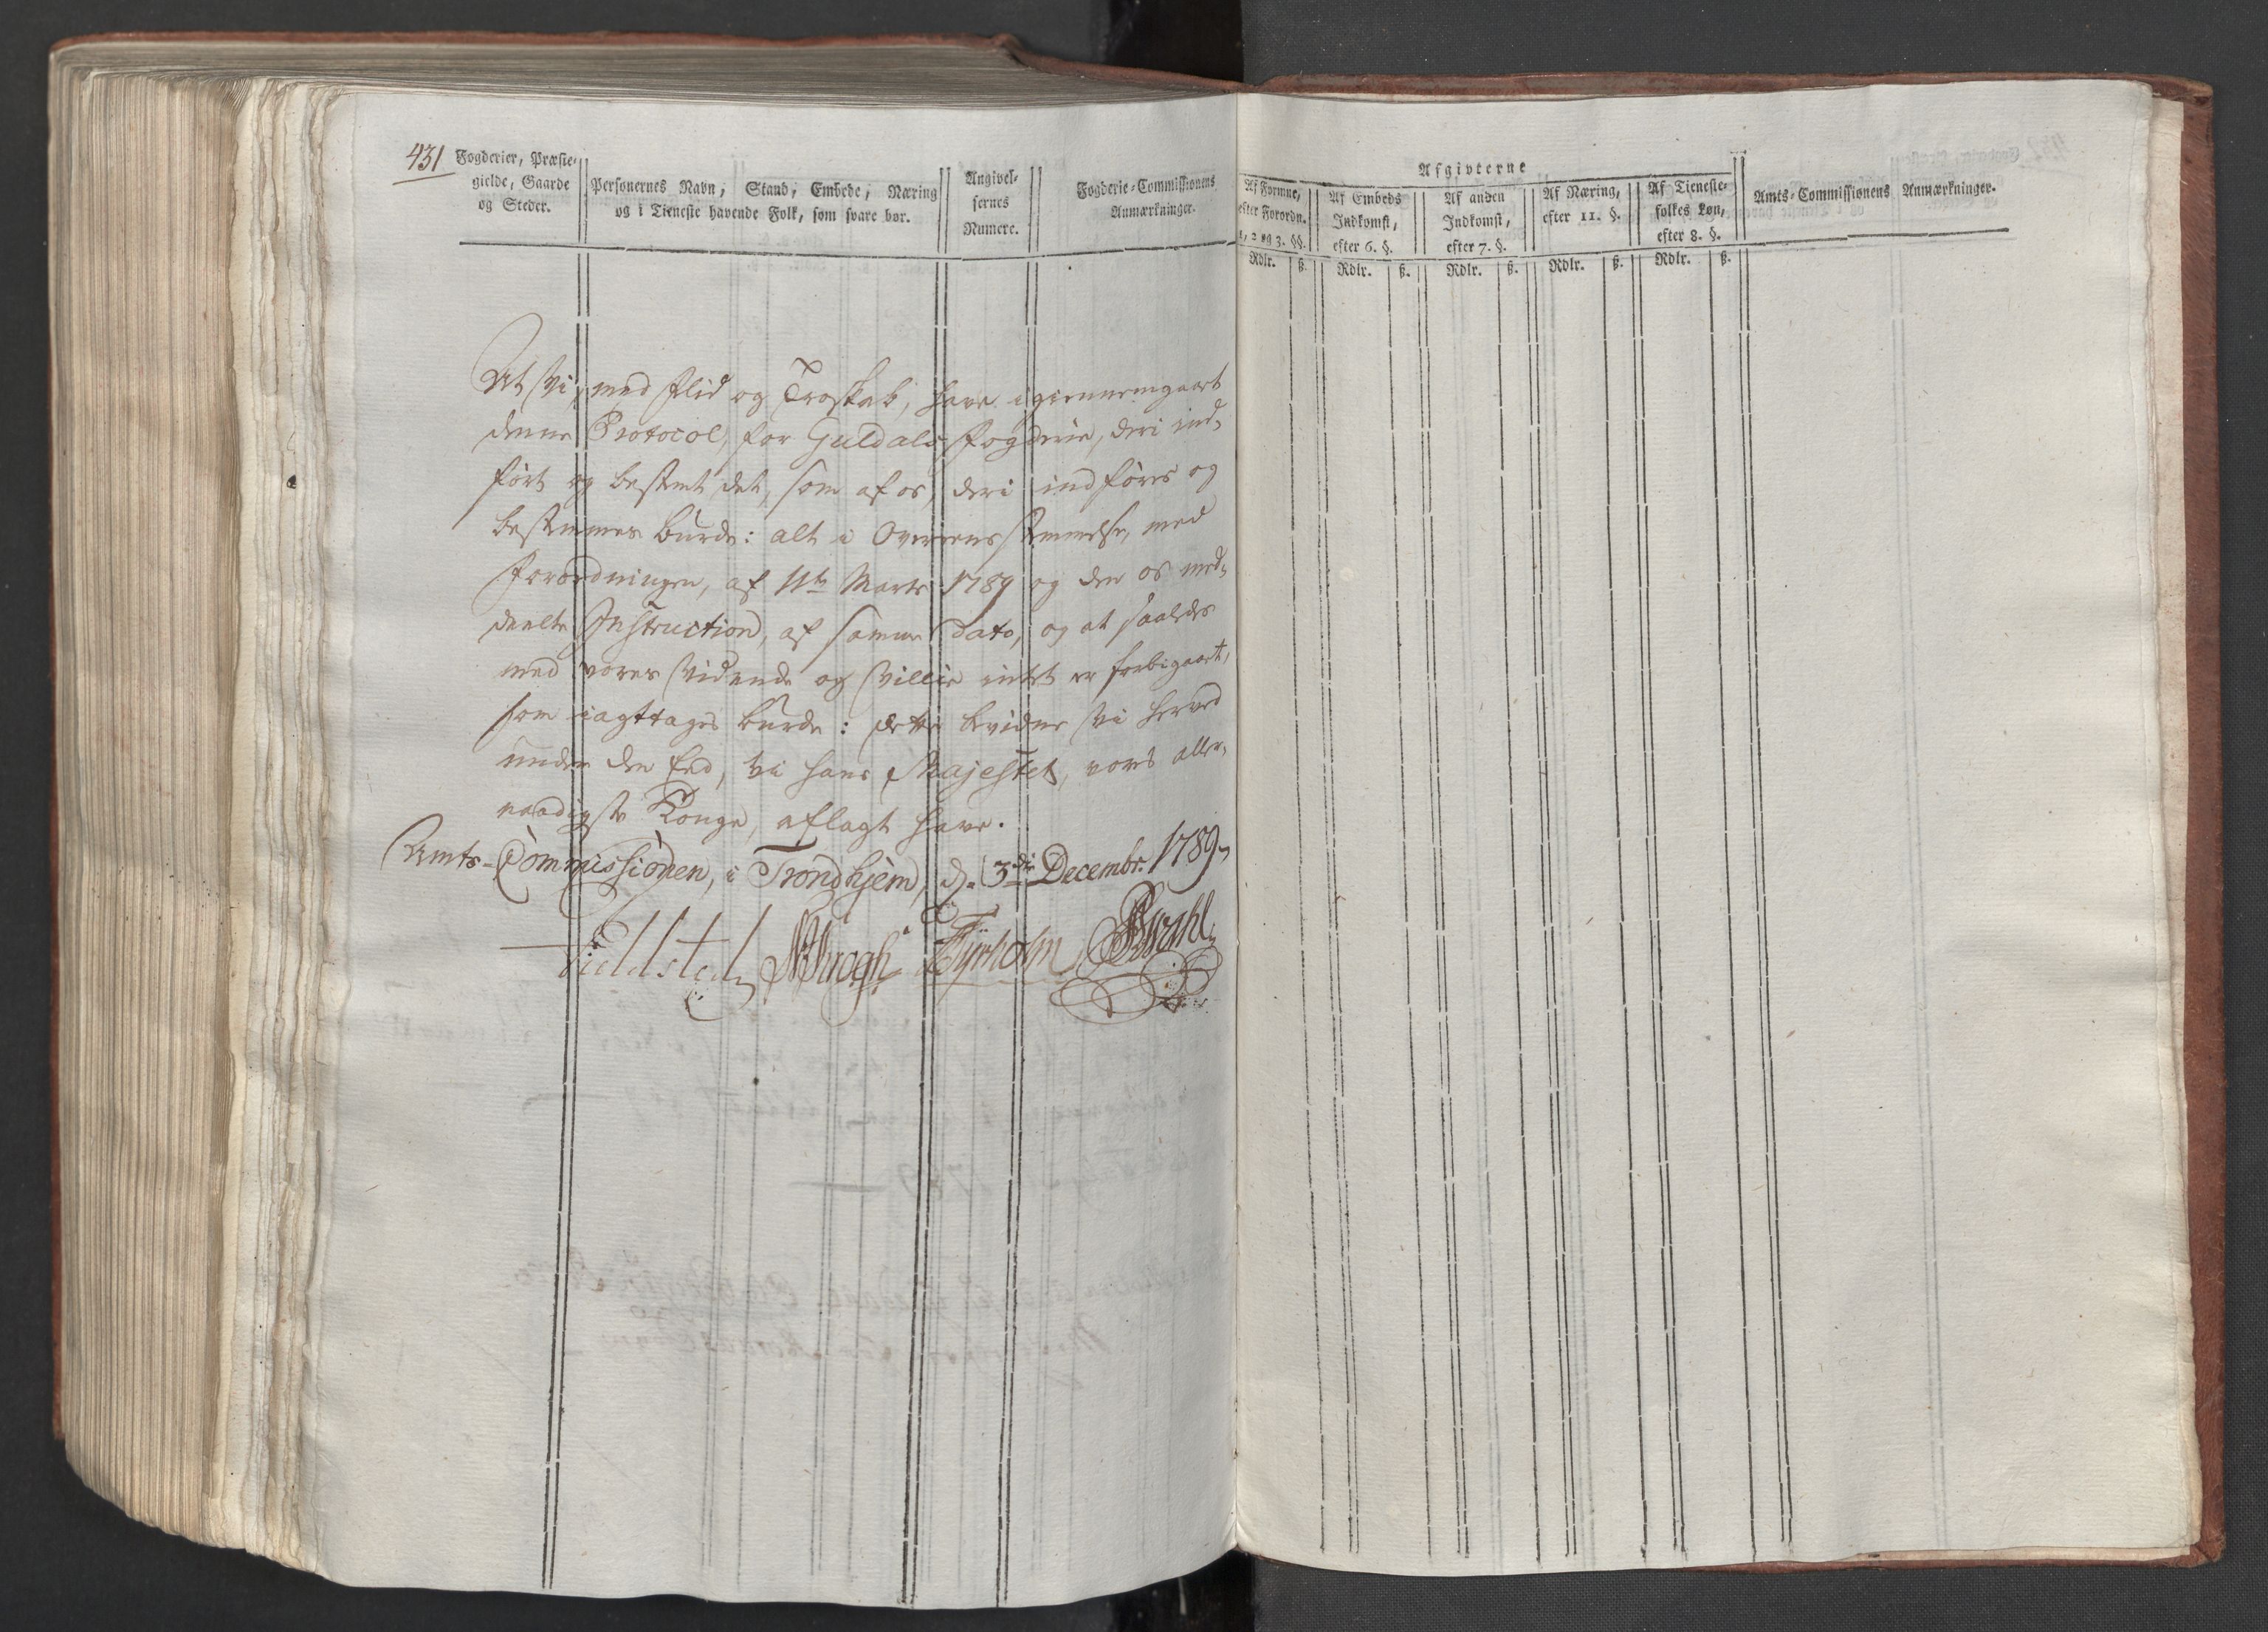 431
Fogderier, Præste-
gielde, Gaarde
og Steder.
Personernes Navn, Stand, Embede, Næring
og i Tieneste havende Folk, som svare bør.
Angivel-
sernes
Numere.
Fogderie-Commissionens
Anmærkninger.
At Vi, med Flid og Troskab, have igiennemgaaet
denne Protocol, for Guldals Fogderie, deri ind-
ført og bestemt det, som af os, deri indføres og
bestemmes burde: alt i Overeensstemmelse, med
Forordningen, af 11te Marts 1789 og den os med-
deelte Instruction, af samme Dato, og at saaledes
med vores Vidende og Villie intet er forbigaaet,
som iagttages burde: dette bevidne Vi herved
under den Eed, Vi Hans Majestet, vores aller-
naadigste Konge, aflagt have.
Amts-Commissionen, i Trondhjem, d. 3de Decembr. 1789.
Fieldsted Krogh Tyrholm
Afgivterne
Af Formue,
efter Forordn.
1, 2 og 3. §§.
Af Embeds
Indkomst,
efter 6. §.
Af anden
Indkomst,
efter 7. §.
Af Næring,
efter 11. §.
Af Tieneste-
folkes Løn,
efter 8. §.
Amts-Commissionens Anmærkninger.
Rdlr. ß. Rdlr. ß. Rdlr. ß. Rdlr. ß. Rdlr. ß.